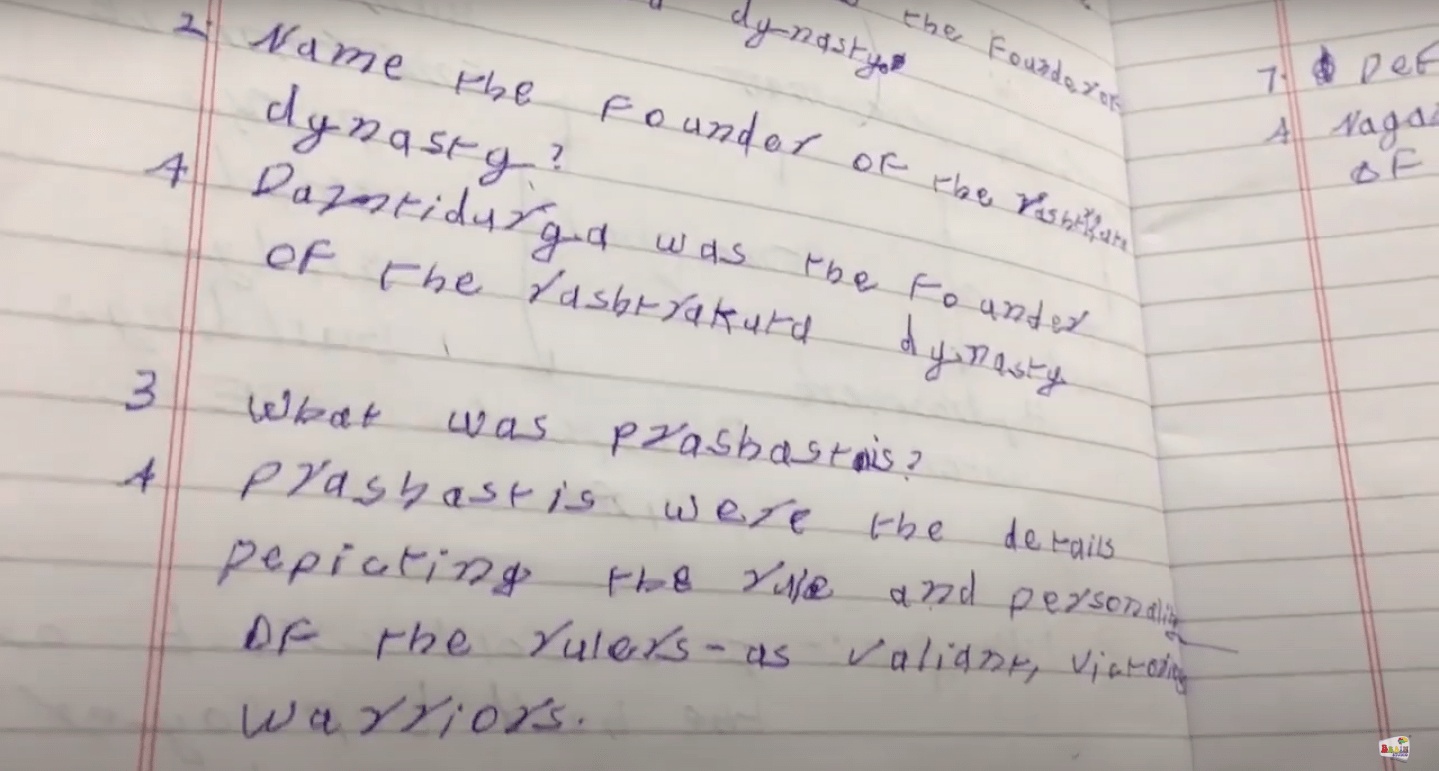 the Founder of
dynasty.
2. Name the Founder of the rashtrakuta
dynasty?
A Dantidurga was the Founder
of the rashtrakuta dynasty
3 What was prashastis?
A prashastis were the details
Depicting the rule and personality
of the rulers-as valiant, victorious
warriors.
7.
A Naga
OF